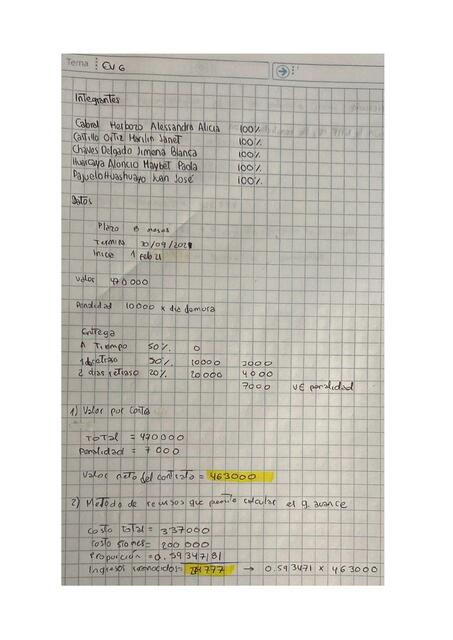 Tema CU 6
Integrantes
Cabral Harbozo Alessandra Alicia 100%
Castillo Ortiz Marilin Janet 100%
Chaves Delgado Jimena Blanca 100%
Huarcaya Aloncio Maybet Paola 100%
Pajuelo Huashuayo Juan José 100%
Datos
Plazo 8 meses
Termino 30/09/2021
Inicio 1 Feb 21
Valor 470000
Penalidad 10000 x dia demora
Entrega
A Tiempo 50% 0
1 dia retraso 30% 10000 3000
2 dias retraso 20% 20000 4000
7000 VE penalidad
1) Valor por contra
TOTAL = 470000
Penalidad = 7000
Valor neto del contrato = 463000
2) Metodo de recursos que permite calcular el g. avance
Costo total = 337000
Costo = 200 000
Proporción = 0.59347181
Ingresos reconocidos = 777 → 0.593471 x 463000